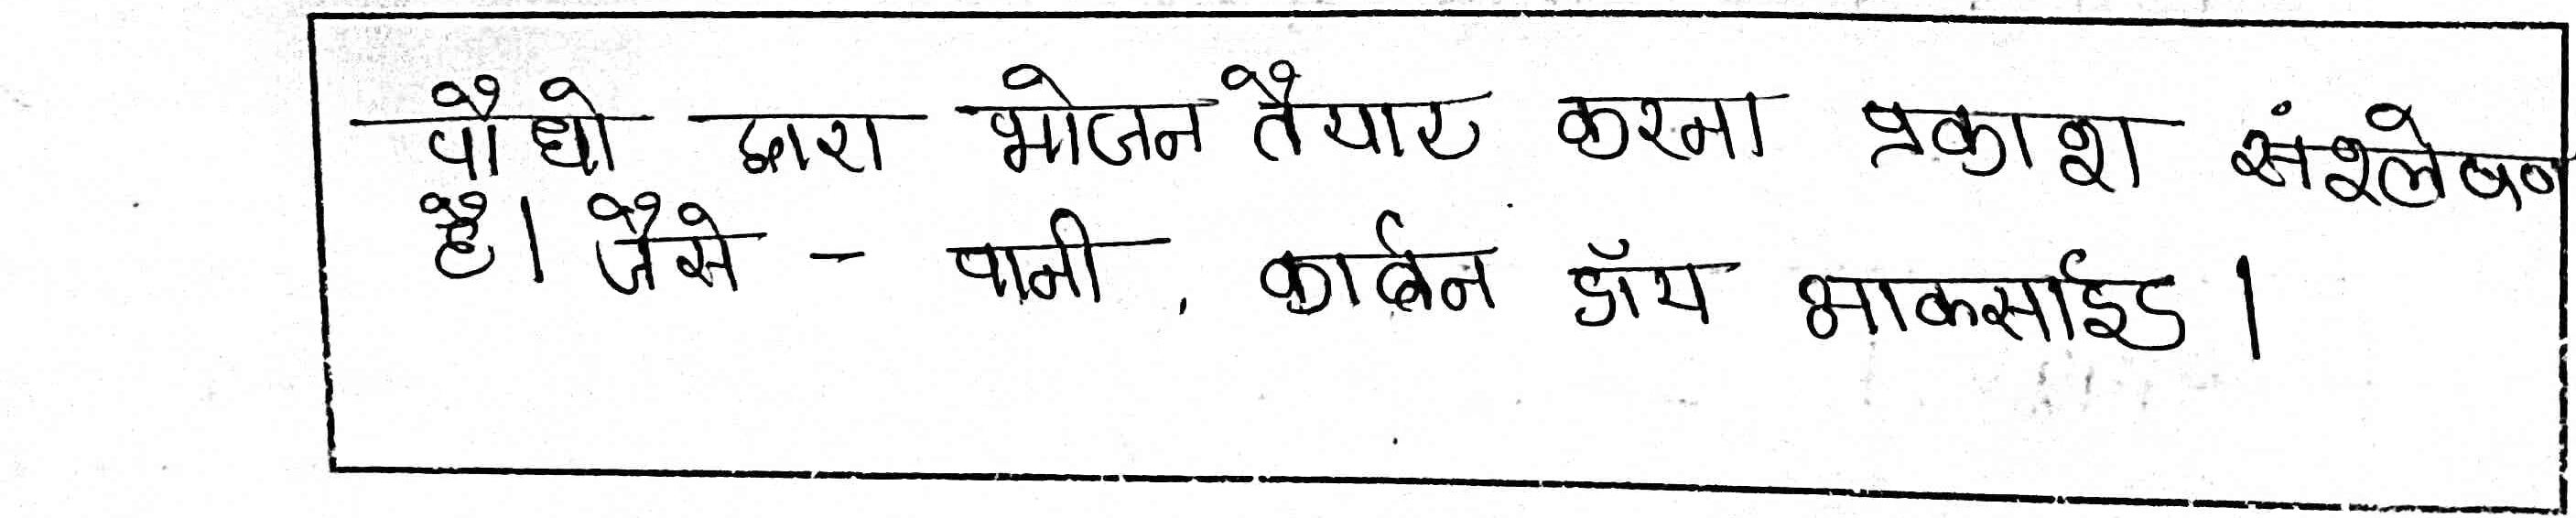 पौधो द्वारा भोजन तैयार करना प्रकाश संश्लेषण
है। जैसे - पानी, कार्बन डॉय आकर्साइड।